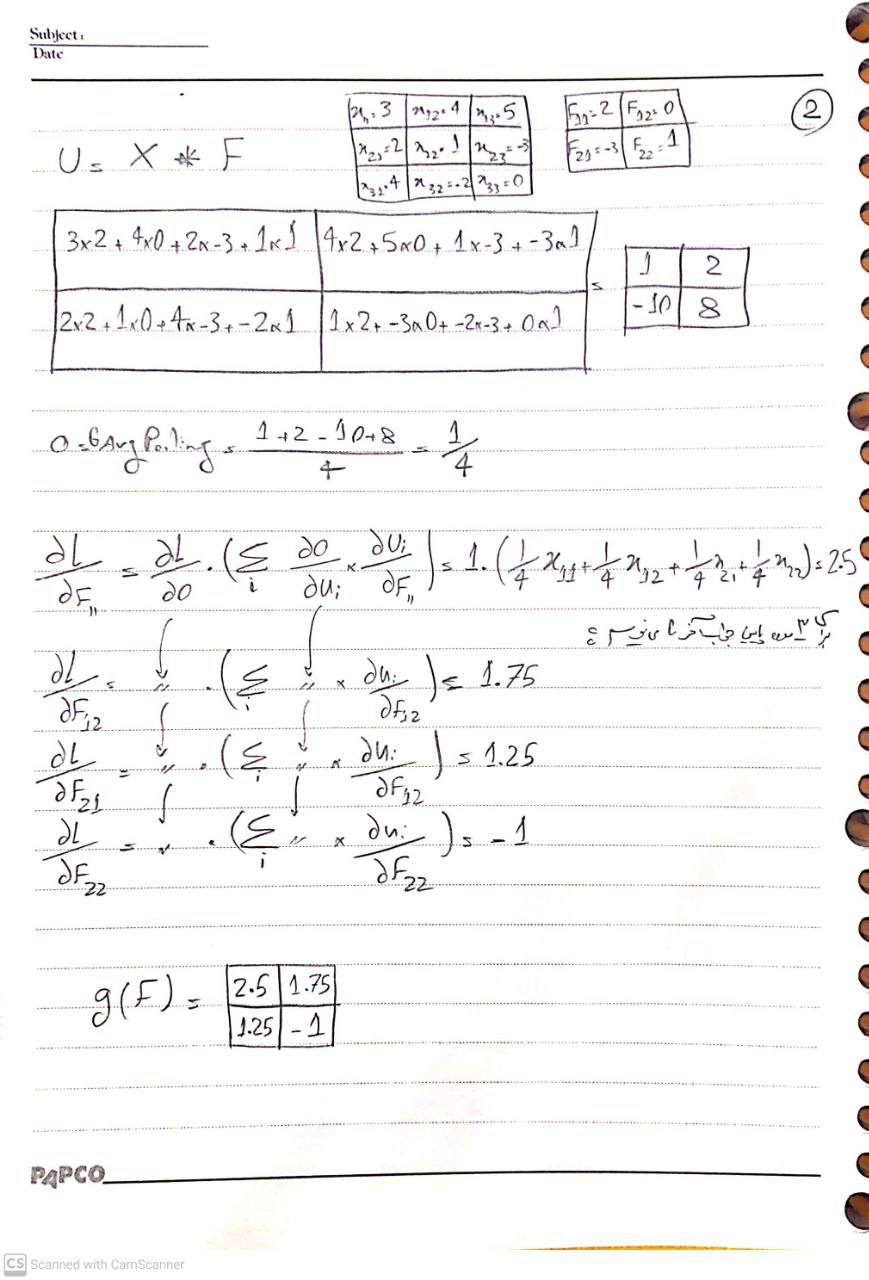 Subject:
Date
②
x₁₁=3 x₁₂=4 x₁₃=5
x₂₁=2 x₂₂=1 x₂₃=-3
x₃₁=4 x₃₂=-2 x₃₃=0
F₁₁=2 F₁₂=0
F₂₁=-3 F₂₂=1
U = X * F
3×2+4×0+2×-3+1×1 4×2+5×0+1×-3+-3×1 = 1 2
2×2+1×0+4×-3+-2×1 1×2+-3×0+-2×-3+0×1 -10 8
O = GAvg Pooling = (1+2-10+8)/4 = 1/4
∂L/∂F₁₁ = ∂L/∂O . (Σᵢ ∂O/∂Uᵢ × ∂Uᵢ/∂F₁₁) = 1.(1/4 x₁₁ + 1/4 x₁₂ + 1/4 x₂₁ + 1/4 x₂₂) = 2.5
∂L/∂F₁₂ = " . (Σᵢ " × ∂Uᵢ/∂F₁₂) = 1.75
∂L/∂F₂₁ = " . (Σᵢ " × ∂Uᵢ/∂F₁₂) = 1.25
∂L/∂F₂₂ = " . (Σᵢ " × ∂Uᵢ/∂F₂₂) = -1
g(F) = 2.5 1.75
1.25 -1
PAPCO
CS Scanned with CamScanner